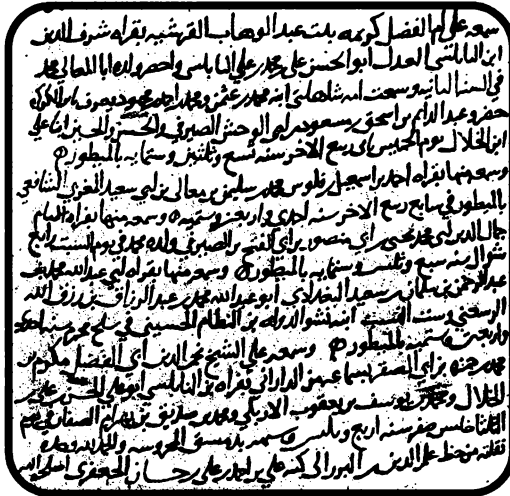 سمعه على ام الفضل كريمه بنت عبد الوهاب القرشيه بقراه شرف الدين
ابن النابلسي العدل ابو الحسن علي بن محمد بن علي النابلسي واحضر ولده ابا المعالي محمد
في السنه الثانيه وسمعت ابنه محمد بن عثمن ومحمد بن احمد بن محمود
حضر وعبد الدايم بن اسحق بن مسعود بن ابي الوحش الصيرفي والحسن والحسين ابنا علي
ابن الخلال يوم الخميس ثاني ربيع الاخر سنه تسع وثلثين وستمايه بالميطور
وسمعه منها بقراه احمد بن اسمعيل بن فلوس محمد بن سليمن بن معالي بن ابي سعيد المغربي الشافعي
بالميطور في سابع ربيع الاخر سنه احدى واربعين وستميه وسمعه منها بقراه الامام
جمال الدين ابي محمد بن ابي منصور بن ابي الفتح بن الصيرفي ولده محمد في يوم السبت رابع
شوال سنه سبع وثلثين وستمايه بالميطور وسمعه منها بقراه ابي عبد الله محمد بن
عبد الرحمن بن سلمان بن سعيد البغدادي ابو عبد الله محمد بن عبد الرزاق بن رزق الله
الرسعني وست ابنه نشو الدوله بن النظام الحسيني في سلخ محرم سنه احدى
واربعين وستميه بالميطور وسمعه علي الشيخ نجم الدين ابي الفضل مكرم بن
محمد بن حمزه بن ابي الصقر بسماعه من الداراني بقراه بن النابلسي ابو علي الحسن بن علي بن
الخلال ومحمد بن يوسف بن يعقوب الاربلي ومحمد بن صديق بن بهرام الصفار في يوم
الثلثا خامس صفر سنه اربع وثلثين وستميه بدمشق المحروسه والحمد لله وحده
نقلته من خط علم الدين بن البرزالي كتبه علي بن